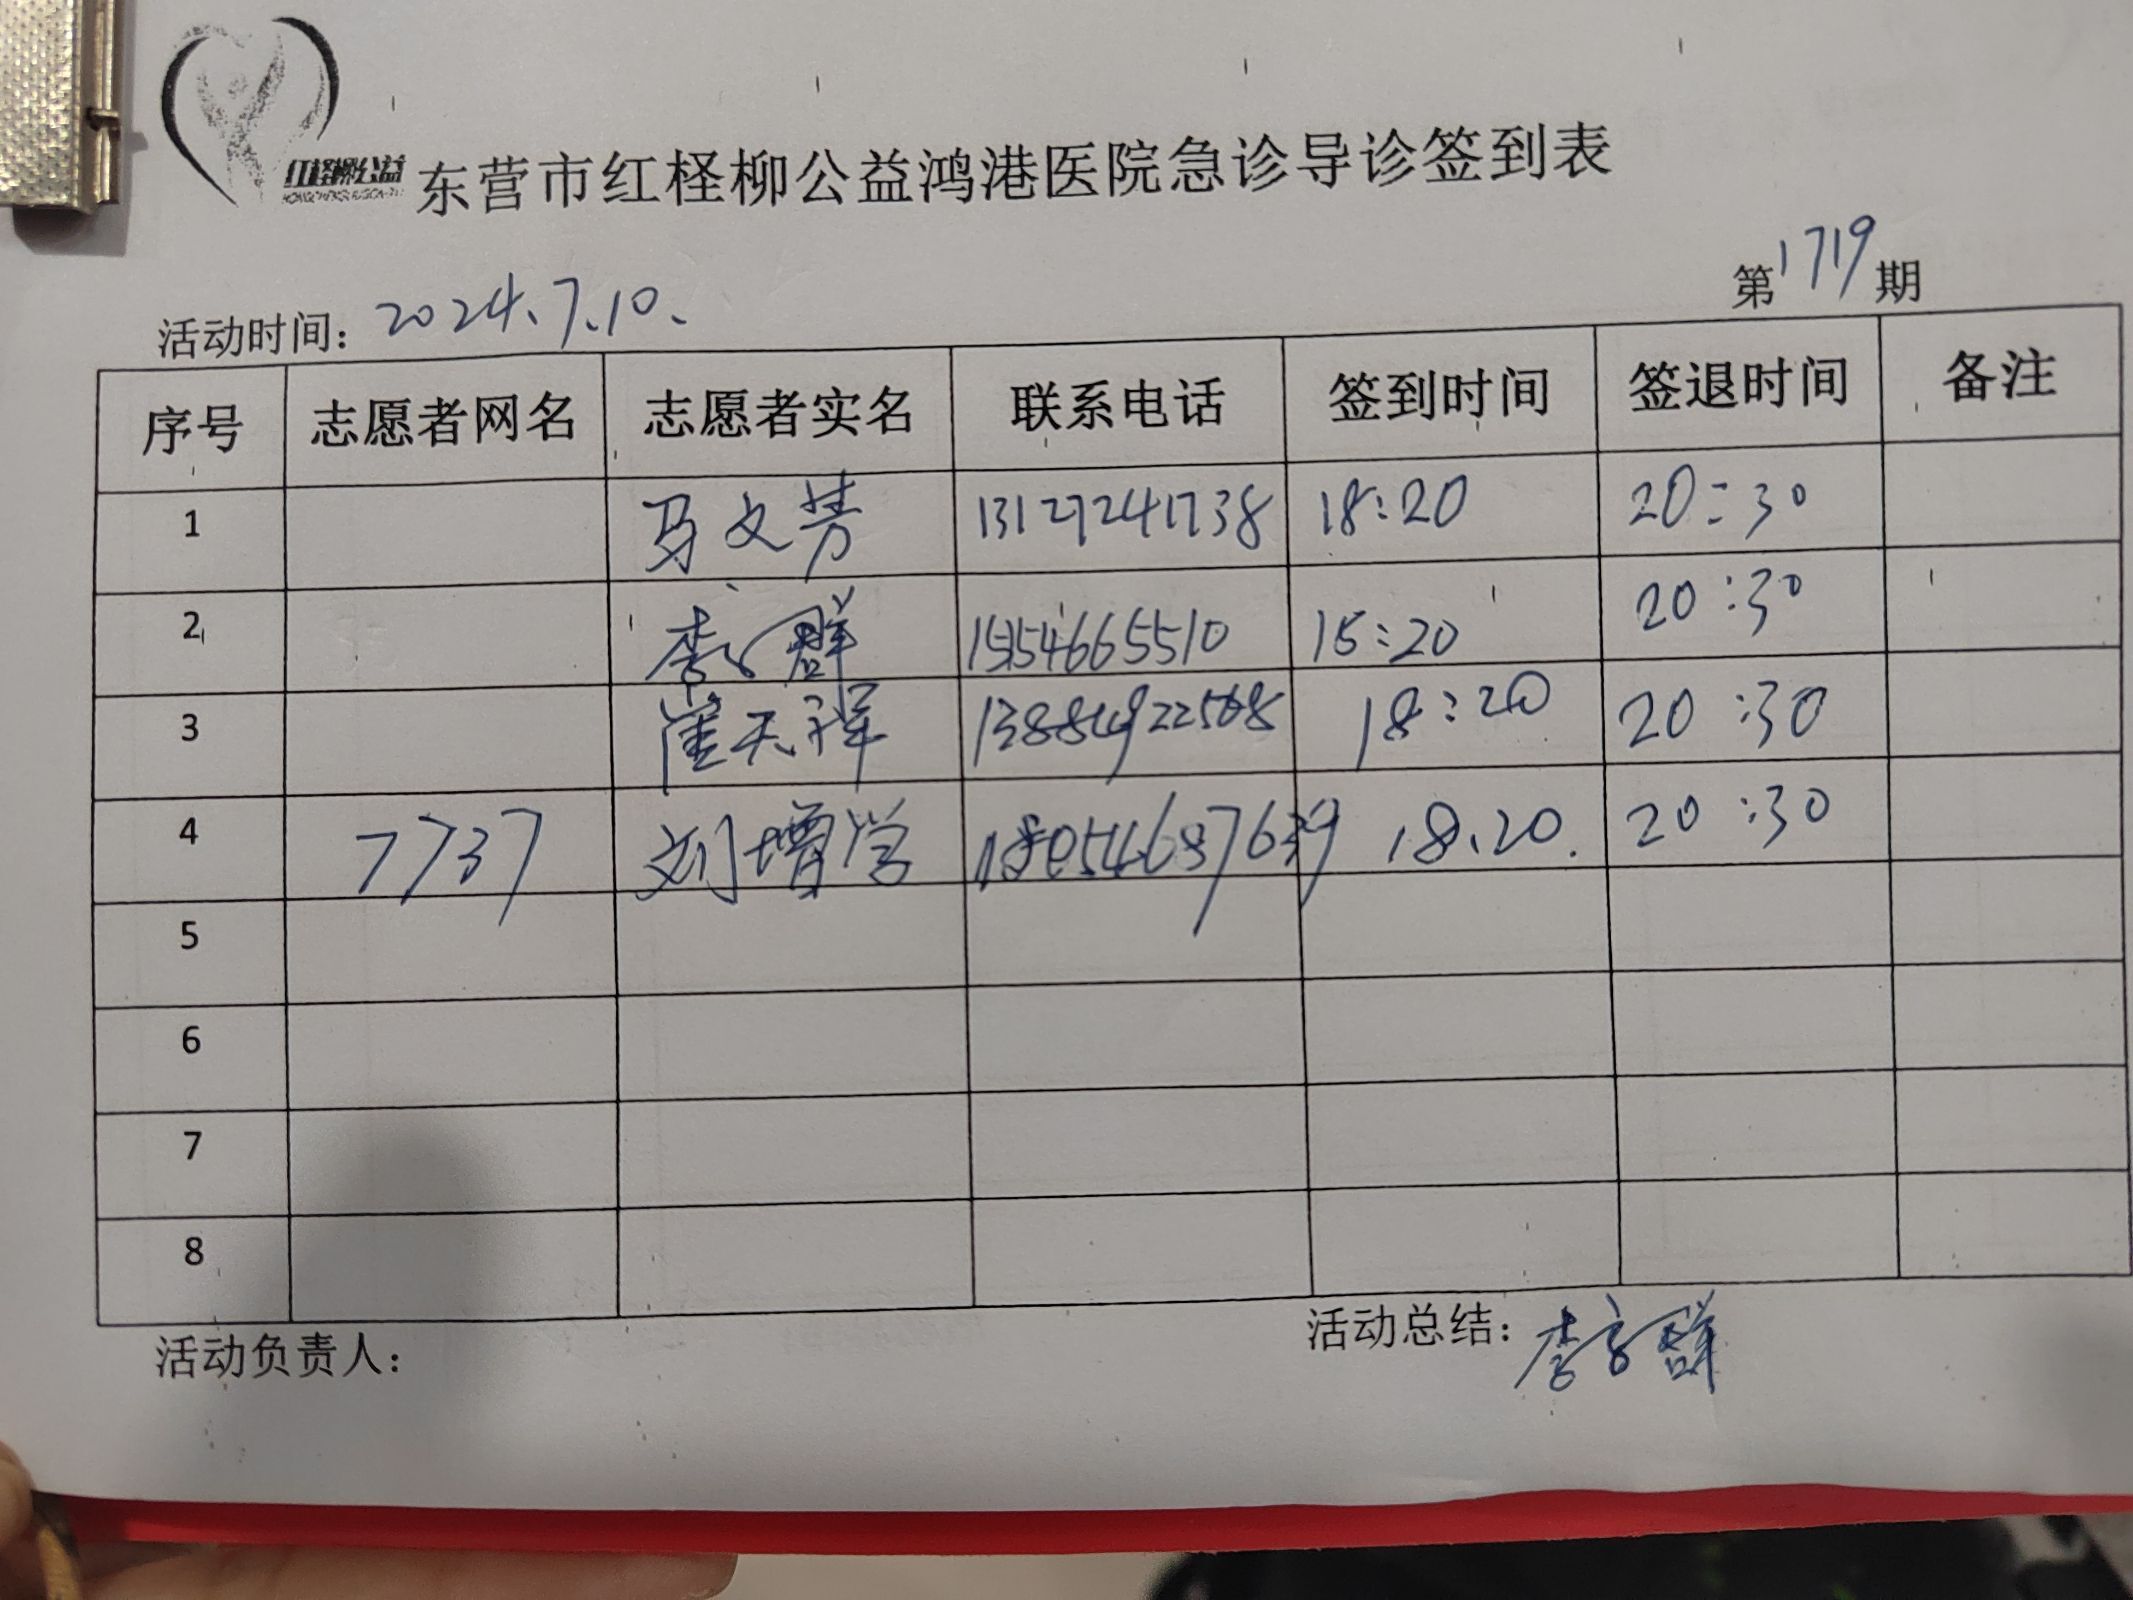 红柽柳公益
东营市红柽柳公益鸿港医院急诊导诊签到表
第1719期
活动时间：2024.7.10.
序号 志愿者网名 志愿者实名 联系电话 签到时间 签退时间 备注
1 马文芳 13127241738 18:20 20:30
2 李群 18:20 20:30
3 崔天祥 18:20 20:30
4 7737 刘增学 18.20. 20:30
5
6
7
8
活动负责人： 活动总结：李群